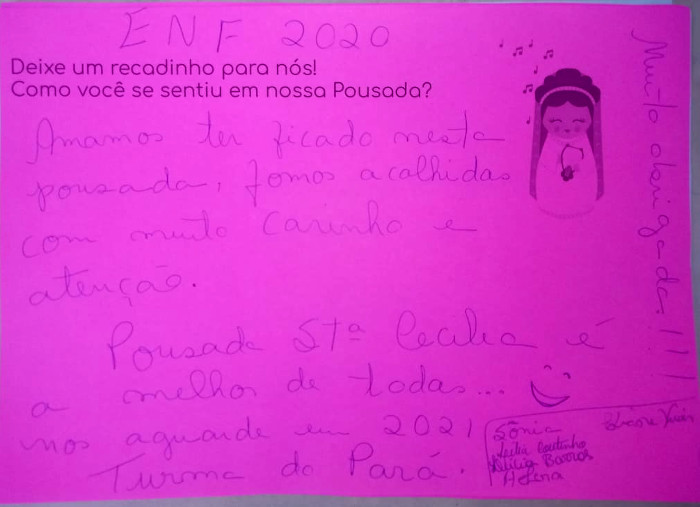 ENF 2020
Deixe um recadinho para nós!
Como você se sentiu em nossa Pousada?
Amamos ter ficado nesta
pousada, fomos acolhidas
com muito carinho e
atenção.
Pousada Stª Cecília é
a melhor de todas...
nos aguarde em 2021
Turma do Pará.
Muito obrigada!!!
Sônia
Coutinho
Barros
Helena